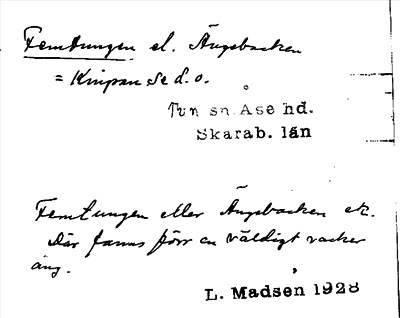 Femtungen el. Ängsbacken
= Knipan se d. o.
Tun sn Åse hd.
Skarab. län
Femtungen eller Ängsbacken ek.
Där fanns förr en väldigt vacker
äng.
L. Madsen 1928